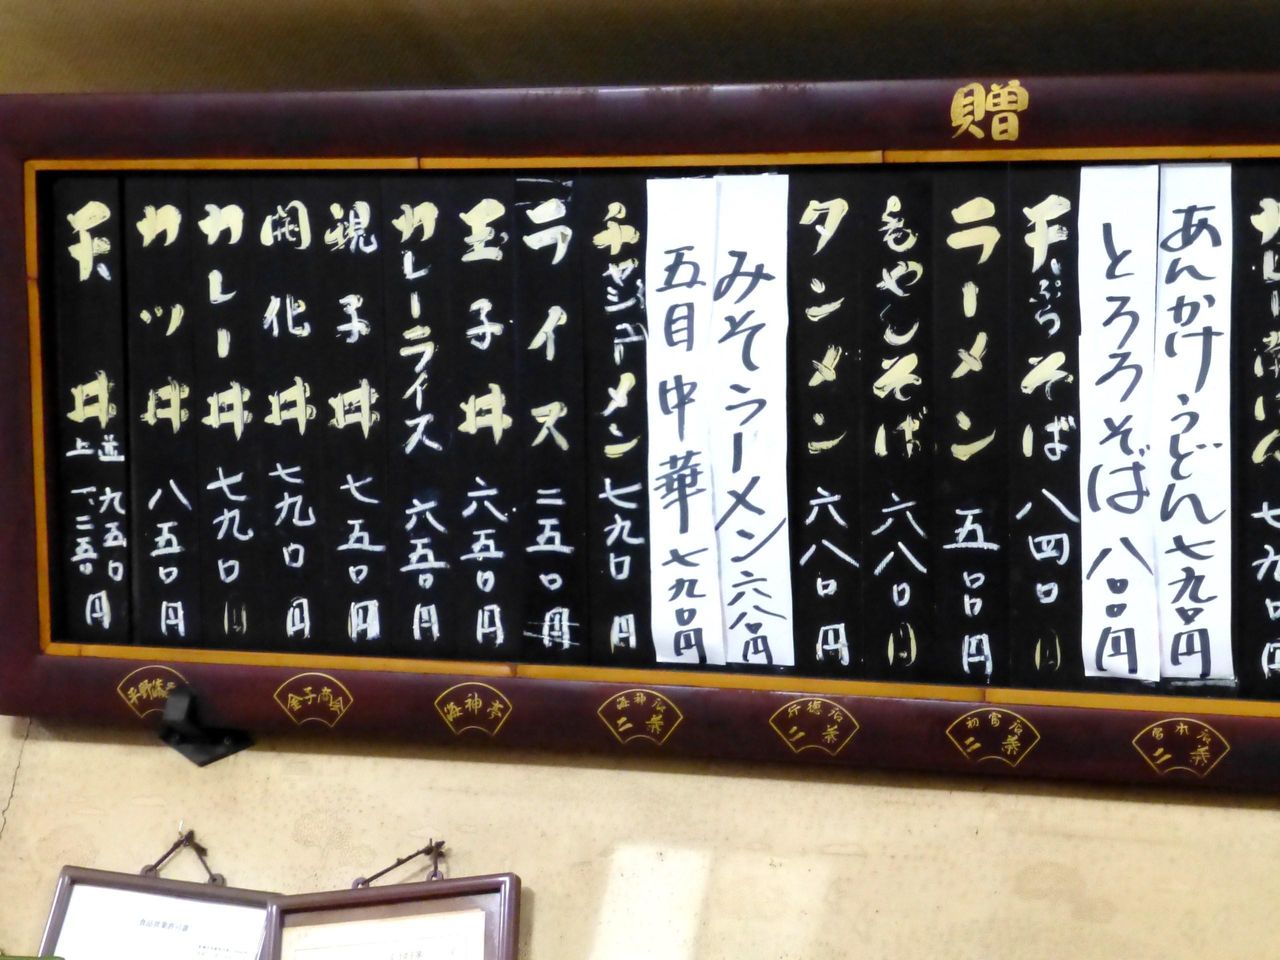 贈
あんかけうどん七九〇円
とろろそば 八〇〇円
天ぷらそば 八四〇円
ラーメン 五〇〇円
もやしそば 六八〇円
タンメン 六八〇円
みそラーメン 六八〇円
五目中華 七九〇円
チャシューメン 七九〇円
ライス 二五〇円
玉子丼 六五〇円
カレーライス 六五〇円
親子丼 七五〇円
開化丼 七九〇円
カレー丼 七九〇円
カツ丼 八五〇円
天丼 並 九五〇 上 一、二五〇円
金子商会
海神亭